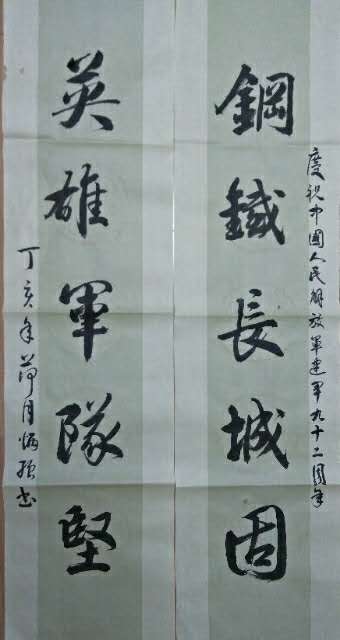 慶祝中國人民解放軍建軍九十二周年
鋼鐵長城固
英雄軍隊堅
丁亥年荷月炳强书